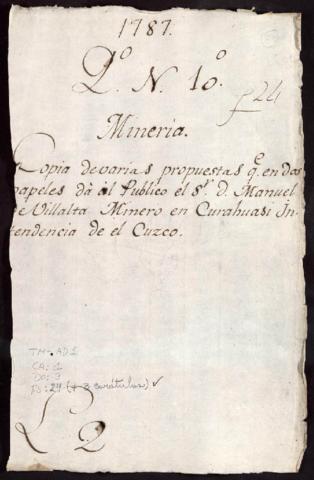 1787.
Q.º N. 10.º
f 24
Mineria.
Copia de varias propuestas q.e en dos
papeles dà al Publico el S.r d. Manuel
de Villalta Minero en Curahuasi In-
tendencia de el Cuzco.
TM-AD1
CA: 1
DO: 3
FS: 24 (+ 3 carátulas) ✓
L 2